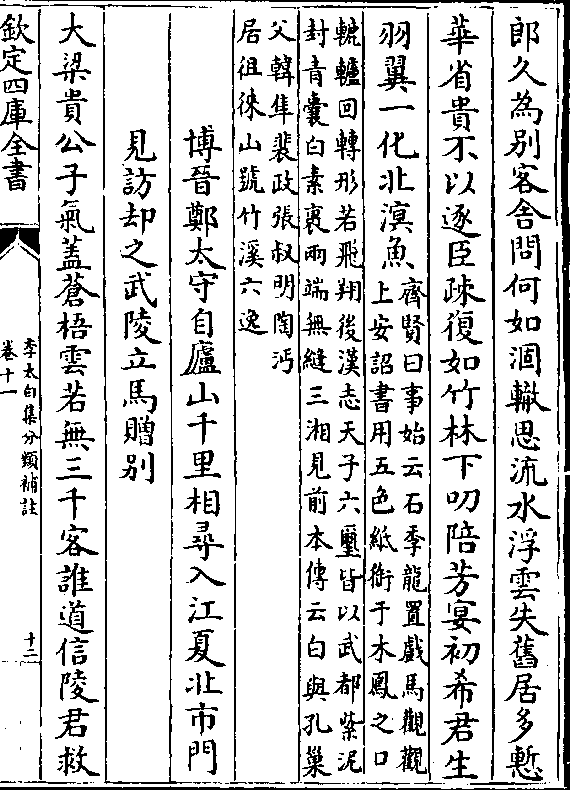 郎久為别客舍問何如涸轍思流水浮雲失舊居多慙
華省貴不以逐臣疎復如竹林下叨陪芳宴初希君生
羽翼一化北溟魚
齊賢曰事始云石季龍置戯馬觀觀
上安詔書用五色紙銜于木鳳之口
轆轤回轉形若飛翔後漢志天子六璽皆以武都紫泥
封青囊白素裏兩端無縫三湘見前本傳云白與孔巢
父韓隼裴政張叔明陶沔
居徂徠山號竹溪六逸
博晉鄭太守自廬山千里相尋入江夏北市門
見訪却之武陵立馬贈别
大梁貴公子氣蓋蒼梧雲若無三千客誰道信陵君救
欽定四庫全書
李太白集分類補註
卷十一
十二